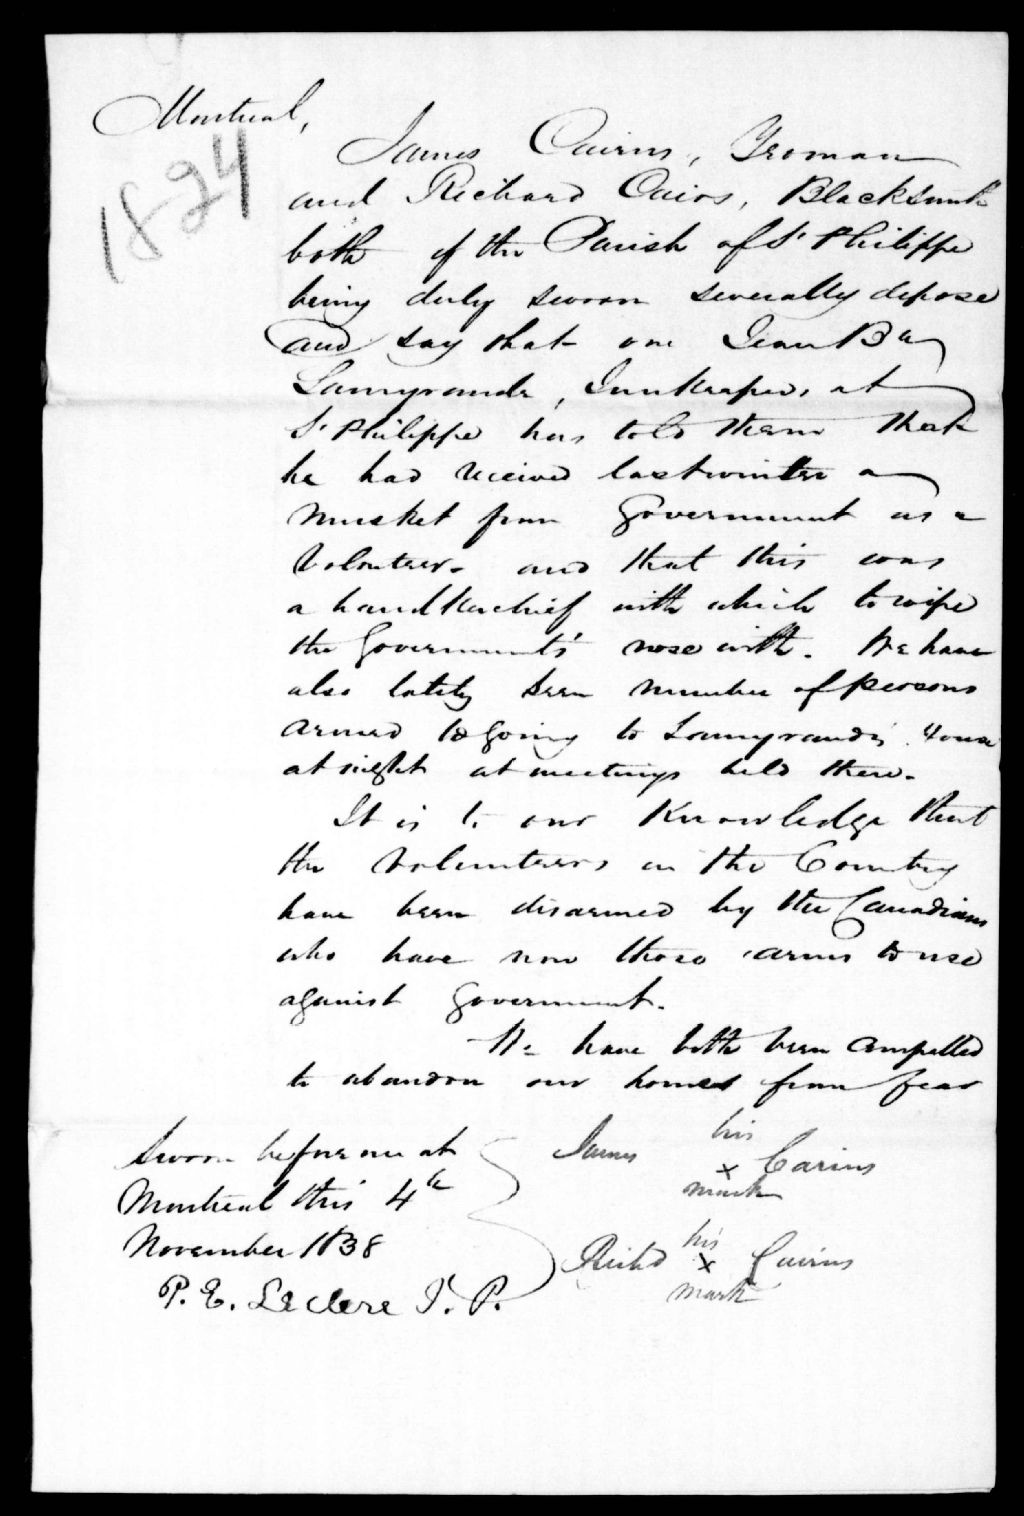 Montreal,
1824
James Cairns, Yeoman
and Richard Cairns, Blacksmith
both of the Parish of St Philippe
being duly sworn severally depose
and say that one Jean Bte
Lamgrande, Innkeeper, at
St Philippe has told them that
he had received last winter a
Musket from Government as a
Volunteer. and that this was
a handkerchief with which to wipe
the Government's nose with. We have
also lately seen number of persons
armed going to Lamgrande's House
at night at meetings held there.
It is to our Knowledge that
the Volunteers in the Country
have been disarmed by the Canadians
who have now those arms to use
against Government.
We have both been compelled
to abandon our homes from fear
Sworn before me at
Montreal this 4th
November 1838
P. E. Leclere J. P.
James his x mark Cairns
Richd his x mark Cairns